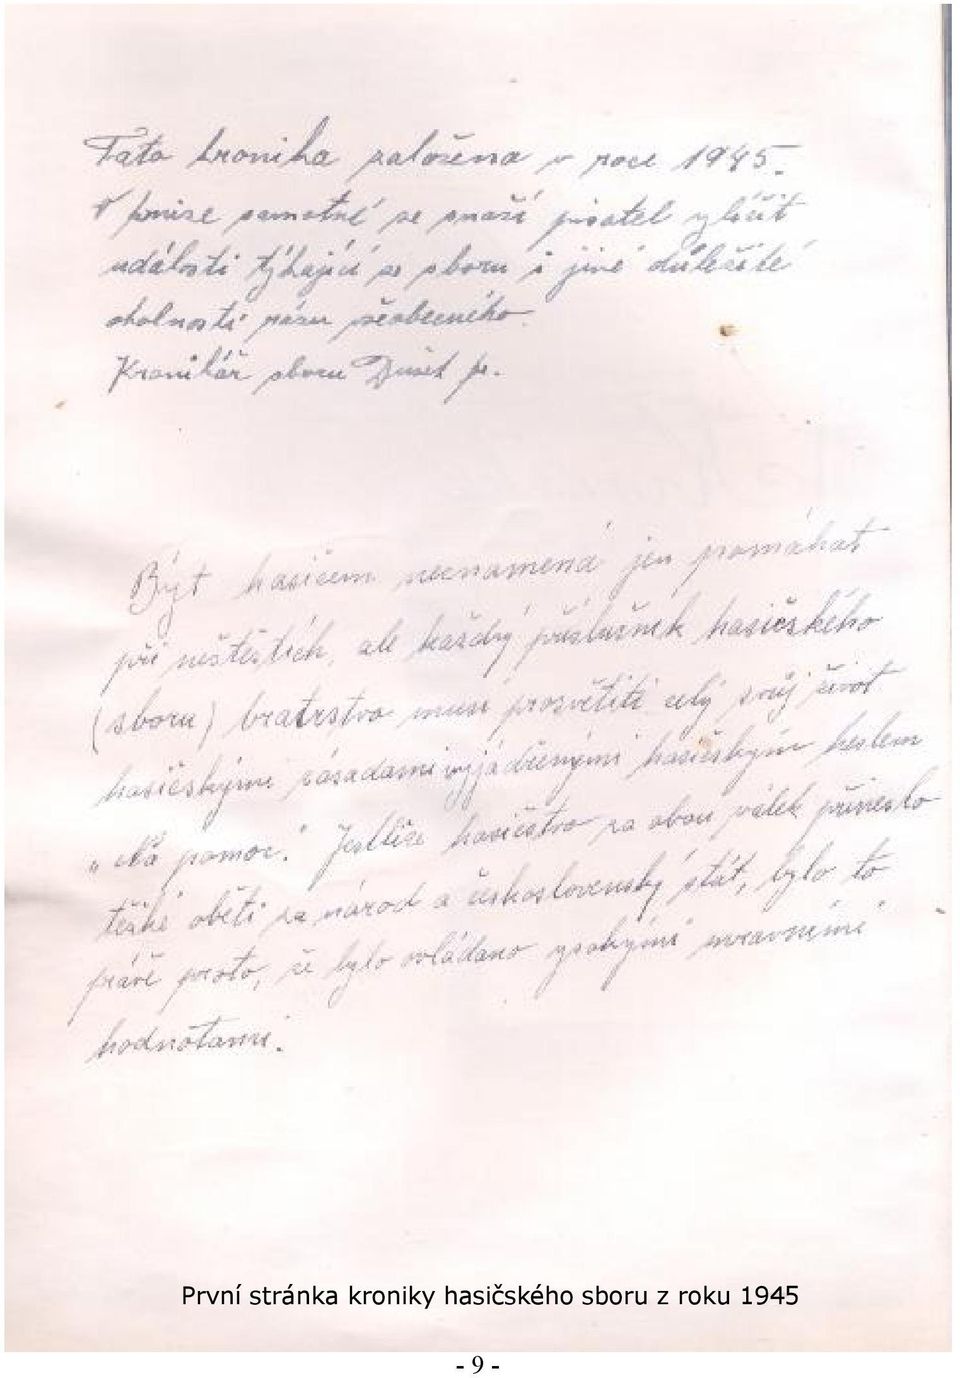 Tato kronika založena v roce 1945.
V knize samotné se snaží pisatel vylíčit
události týkající se sboru i jiné důležité
okolnosti rázu všeobecného.
Kronikář sboru
Být hasičem neznamená jen pomáhat
při neštěstích, ale každý příslušník hasičského
(sboru) bratrstva musí prosvětliti celý svůj život
hasičskými zásadami vyjádřenými hasičským heslem
pomoc." Jestliže hasičstvo za obou válek přineslo
těžké oběti za národ a československý stát, bylo to
právě proto, že bylo ovládáno vysokými mravními
hodnotami.
První stránka kroniky hasičského sboru z roku 1945
- 9 -